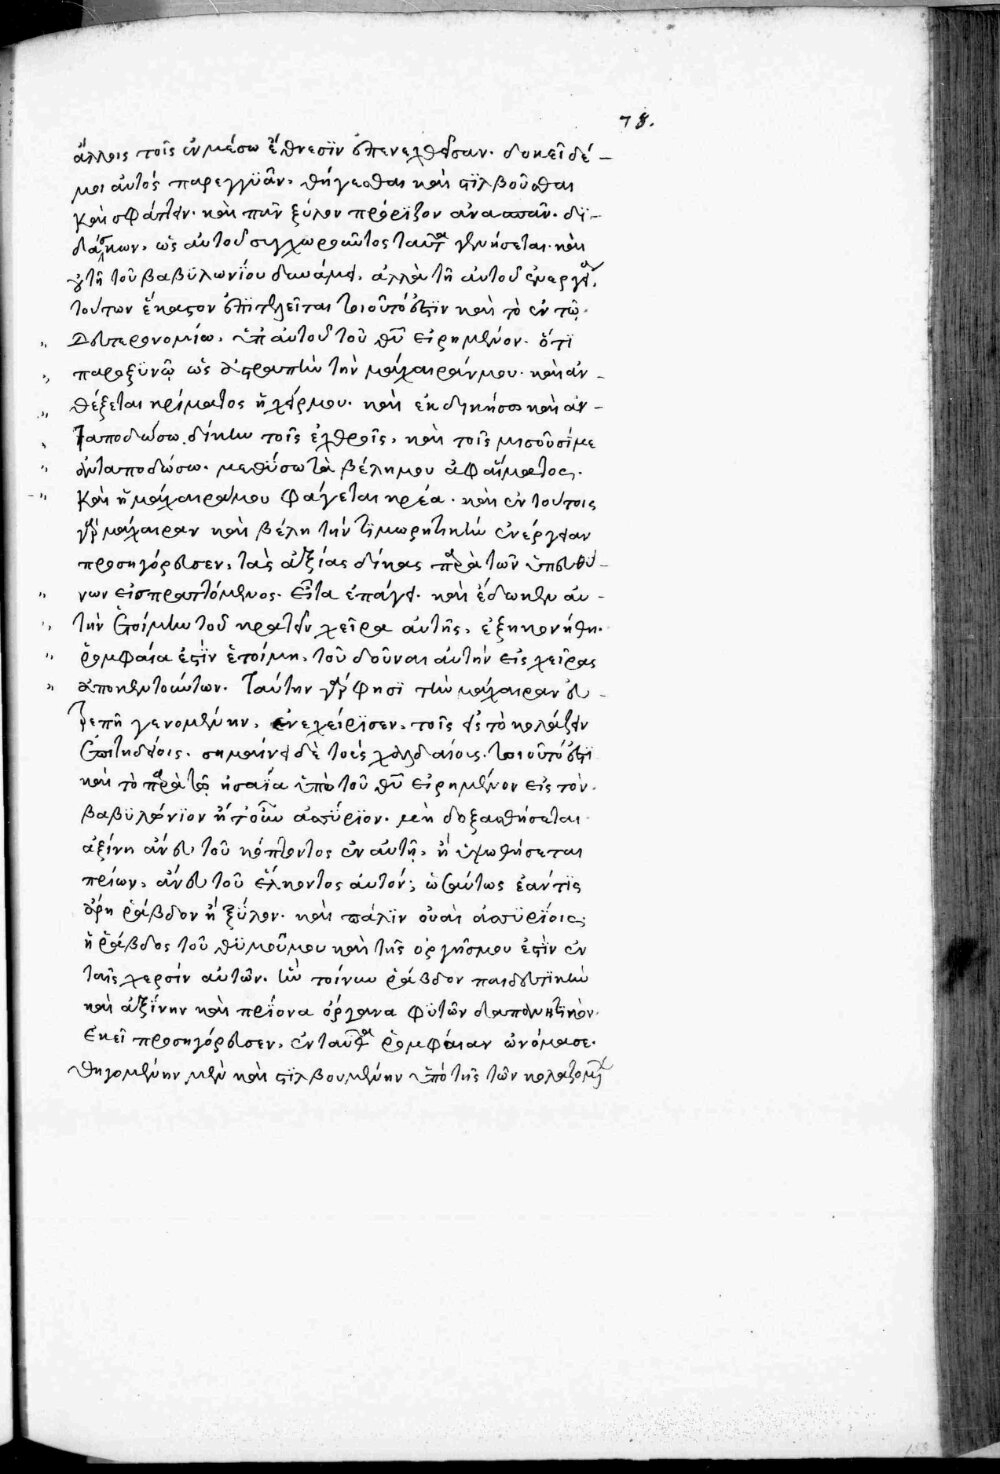 78.
ἄλλοις τοῖς ἐν μέσω ἔθνεσϊν ἐπενεχθεῖσαν. δοκεῖ δέ –
μοι αὐτὸς παρεγγϋᾶν. θήγεσθαι καὶ στιλβοῦσθαι
καὶ σφάττειν. καὶ πᾶν ξύλον πρόρϊζον ἀνασπᾶν. δϊ –
δάσκων, ὡς αὐτοῦ συγχωροῦντος ταῦτα γενήσεται. καὶ
οὐ τῆ τοῦ βαβϋλωνΐου δυνάμει, ἀλλὰ τῆ αὐτοῦ ἐνεργεία,
τούτων ἕκαστον ἐπϊτελεῖται τοιοῦτό ἐστϊν καὶ τὸ ἐν τῶ.
" Δευτερονομίω, ὑπ αὐτοῦ τοῦ θῦ εἰρημένον. ὅτϊ
" παροξϋνῶ ὡς ἀστραπὴν τὴν μάχαιράν μου. καὶ ἀν –
" θέξεται κρίματος ἡ χείρ μου. καὶ ἐκδικήσω καὶ ἀν –
" ταποδώσω δίκην τοῖς ἐχθροῖς, καὶ τοῖς μισοῦσί με
" ἀνταποδώσω. μεθύσω τὰ βέλη μου ἀφ αἵματος.
" Καὶ ἡ μάχαιρά μου φάγεται κρέα. καὶ ἐν τούτοις
γὰρ μάχαιραν καὶ βέλη τὴν τϊμωρητϊκὴν ἐνέργειαν
προσηγόρευσεν, τὰς ἀξίας δίκας παρὰ τῶν ὑπευθύ –
" νων εἰσπραττόμενος. Εἶτα ἐπάγει. καὶ ἔδωκεν αὐ –
" τὴν ἑτοίμην τοῦ κρατεῖν χεῖρα αὐτῆς, ἐξηκονήθη.
" ῥομφαία ἐστϊν ἑτοίμη, τοῦ δοῦναι αὐτὴν εἰς χεῖρας
" ἀποκεντούντων. Ταύτην γάρ φησϊ τὴν μάχαιραν εὐ –
τρεπῆ γενομένην, ἐνεχείρισεν, τοῖς εἰς τὸ κολάζειν
ἐπιτηδείοις. σημαίνει δὲ τοὺς χαλδαίους. τοιοῦτό ἐστϊ
καὶ τὸ παρὰ τῶ ἡσαΐα ὑπὸ τοῦ θῦ εἰρημένον εἰς τὸν.
βαβϋλώνϊον ἤτουν ἀσσύρϊον. μὴ δοξασθήσεται.
ἀξίνη ἄνευ τοῦ κόπτοντος ἐν αὐτῆ, ἢ ὑψωθήσεται
πρίων, ἄνευ τοῦ ἕλκοντος αὐτόν; ὡσαύτως ἐάν τϊς
ἄρη ῥάβδον ἢ ξύλον. καὶ πάλϊν οὐαὶ ἀσσϋρΐοις;
ἡ ῥάβδος τοῦ θϋμοῦ μου καὶ τῆς ὀργῆς μου ἐστὶν ἐν
ταῖς χερσὶν αὐτῶν. τὴν τοίνυν ῥάβδον παιδευτϊκὴν
καὶ ἀξίνην καὶ πρΐονα ὄργανα φϋτῶν διαπονητϊκὸν.
Εκεῖ προσηγόρευσεν, ἐνταῦθα ῥομφαίαν ὠνόμασε.
θηγομένην μὲν καὶ στϊλβουμένην ὑπὸ τῆς τῶν κολαζομέ